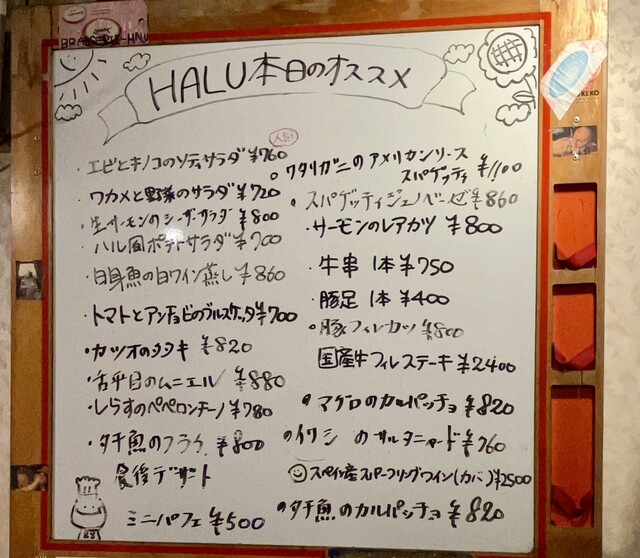 HALU本日のオススメ
人気
・エビとキノコのソティサラダ ¥760
・ワカメと野菜のサラダ ¥720
・生サーモンのシーザーサラダ ¥800
・ハル風ポテトサラダ ¥700
・白身魚の白ワイン蒸し ¥860
・トマトとアンチョビのブルスケッタ ¥700
・カツオのタタキ ¥820
・舌平目のムニエル ¥880
・しらすのペペロンチーノ ¥780
・タチ魚のフライ ¥800
食後デザート
ミニパフェ ¥500
ワタリガニのアメリカンソース
スパゲッティ ¥1100
スパゲッティジェノベーゼ ¥860
・サーモンのレアカツ ¥800
・牛串 1本 ¥750
・豚足 1本 ¥400
・豚フィレカツ ¥800
国産牛フィレステーキ ¥2400
・マグロのカルパッチョ ¥820
・イワシのサルタニャード ¥760
スペイン産スパークリングワイン(カバ) ¥2500
・タチ魚のカルパッチョ ¥820